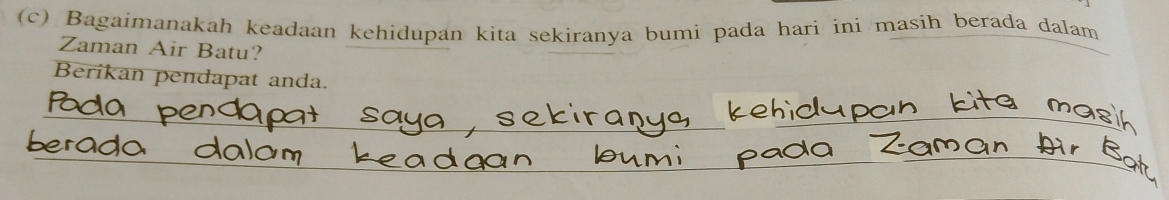 (c) Bagaimanakah keadaan kehidupan kita sekiranya bumi pada hari ini masih berada dalam
Zaman Air Batu?
Berikan pendapat anda.
Pada pendapat saya, sekiranya kehidupan kita masih
berada dalam keadaan bumi pada Zaman Air Batu